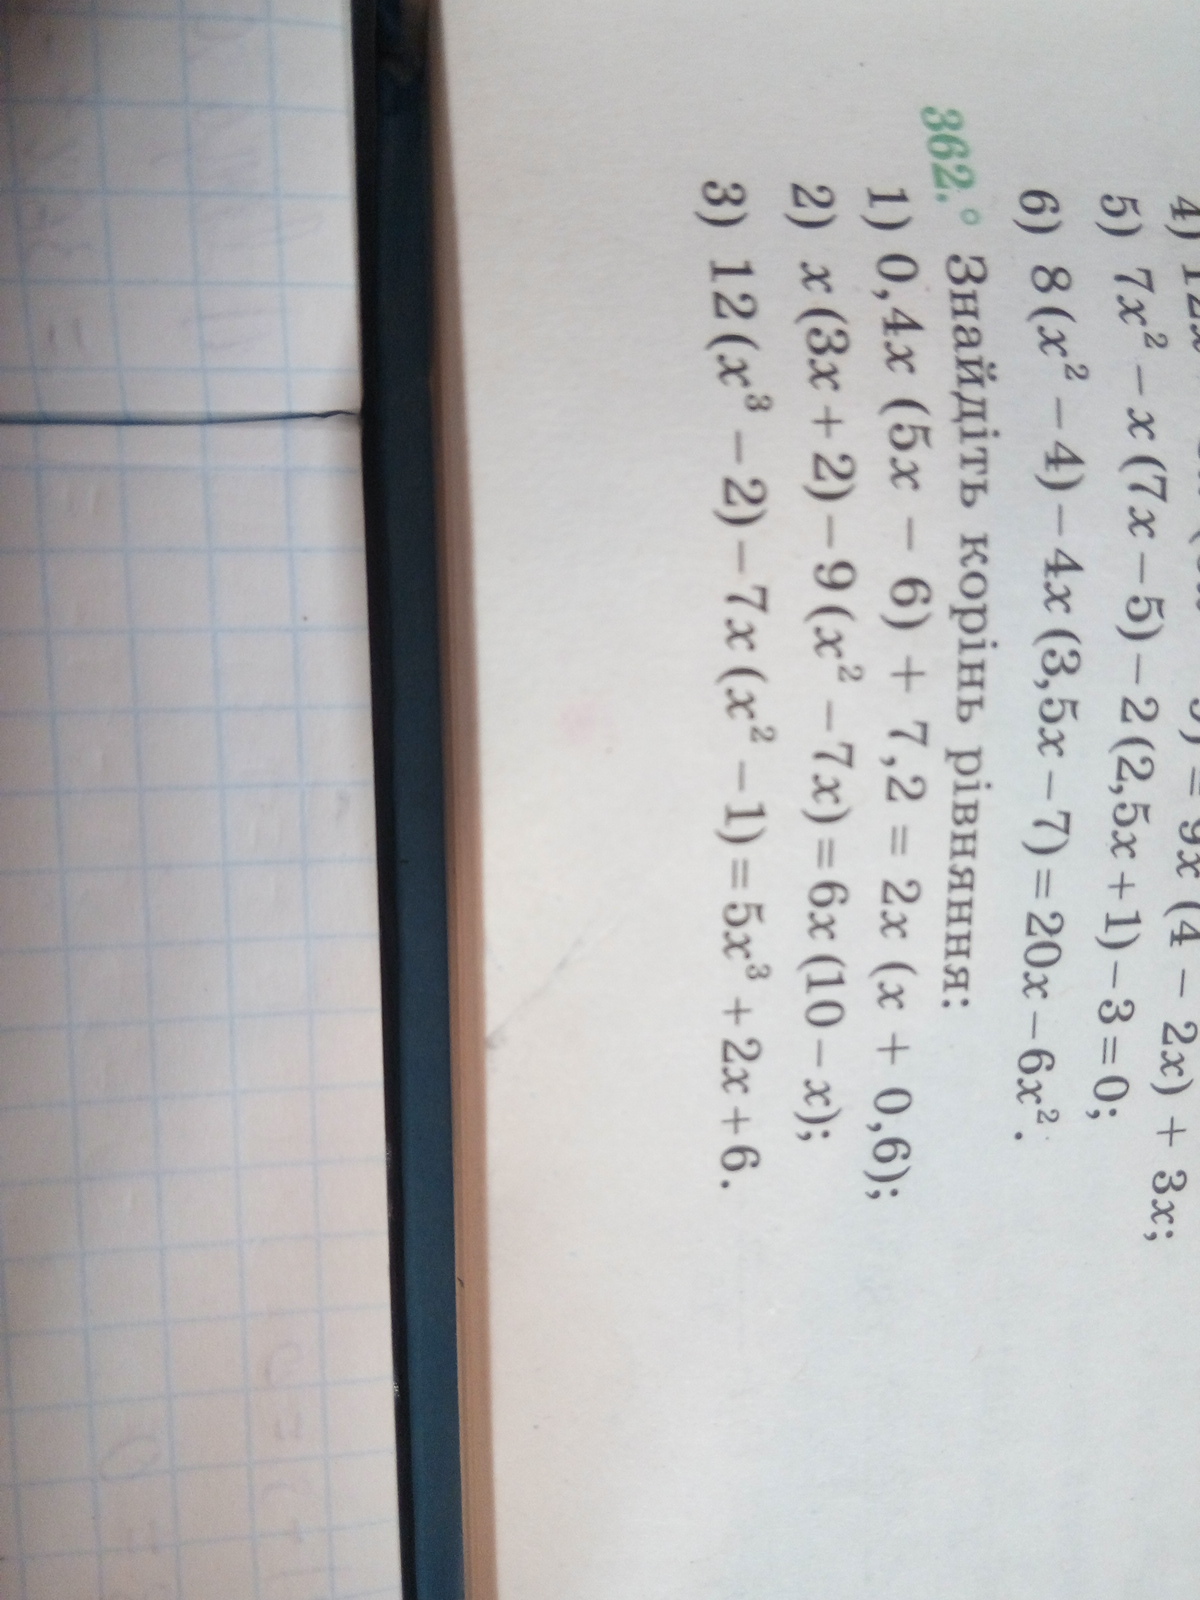 4) 12x (4 − 2x) + 3x;
5) 7x² − x (7x − 5) − 2 (2,5x + 1) − 3 = 0;
6) 8 (x² − 4) − 4x (3,5x − 7) = 20x − 6x².
362.° Знайдіть корінь рівняння:
1) 0,4x (5x − 6) + 7,2 = 2x (x + 0,6);
2) x (3x + 2) − 9 (x² − 7x) = 6x (10 − x);
3) 12 (x³ − 2) − 7x (x² − 1) = 5x³ + 2x + 6.